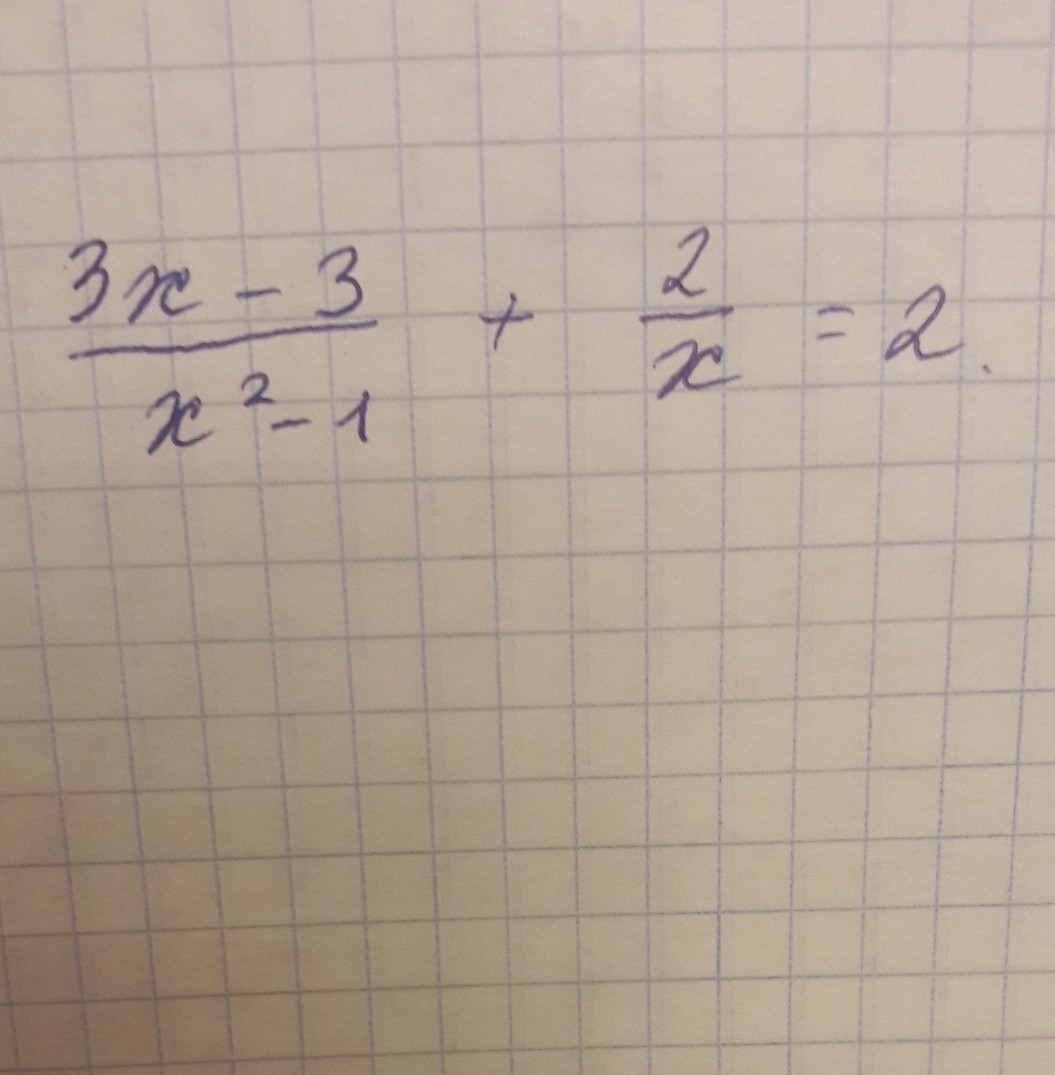 (3x - 3)/(x² - 1) + 2/x = 2.